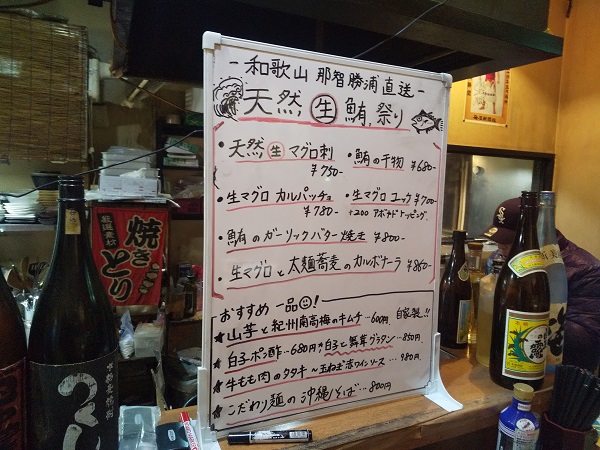 - 和歌山 那智勝浦直送 -
天然 生 鮪 祭り
・天然 生 マグロ刺 ¥750-
・鮪の干物 ¥680-
・生マグロ カルパッチョ ¥780-
・生マグロ ユッケ ¥700-
+200 アボカドトッピング
・鮪のガーリックバター焼き ¥800-
・生マグロと太麺蕎麦のカルボナーラ ¥850-
おすすめ一品!
★山芋と紀州南高梅のキムチ…600円 自家製!!
★白子ポン酢…680円
★白子と舞茸グラタン…850円
★牛もも肉のタタキ〜玉ねぎ赤ワインソース…980円
★こだわり麺の沖縄そば…800円
厳選素材
焼きとり